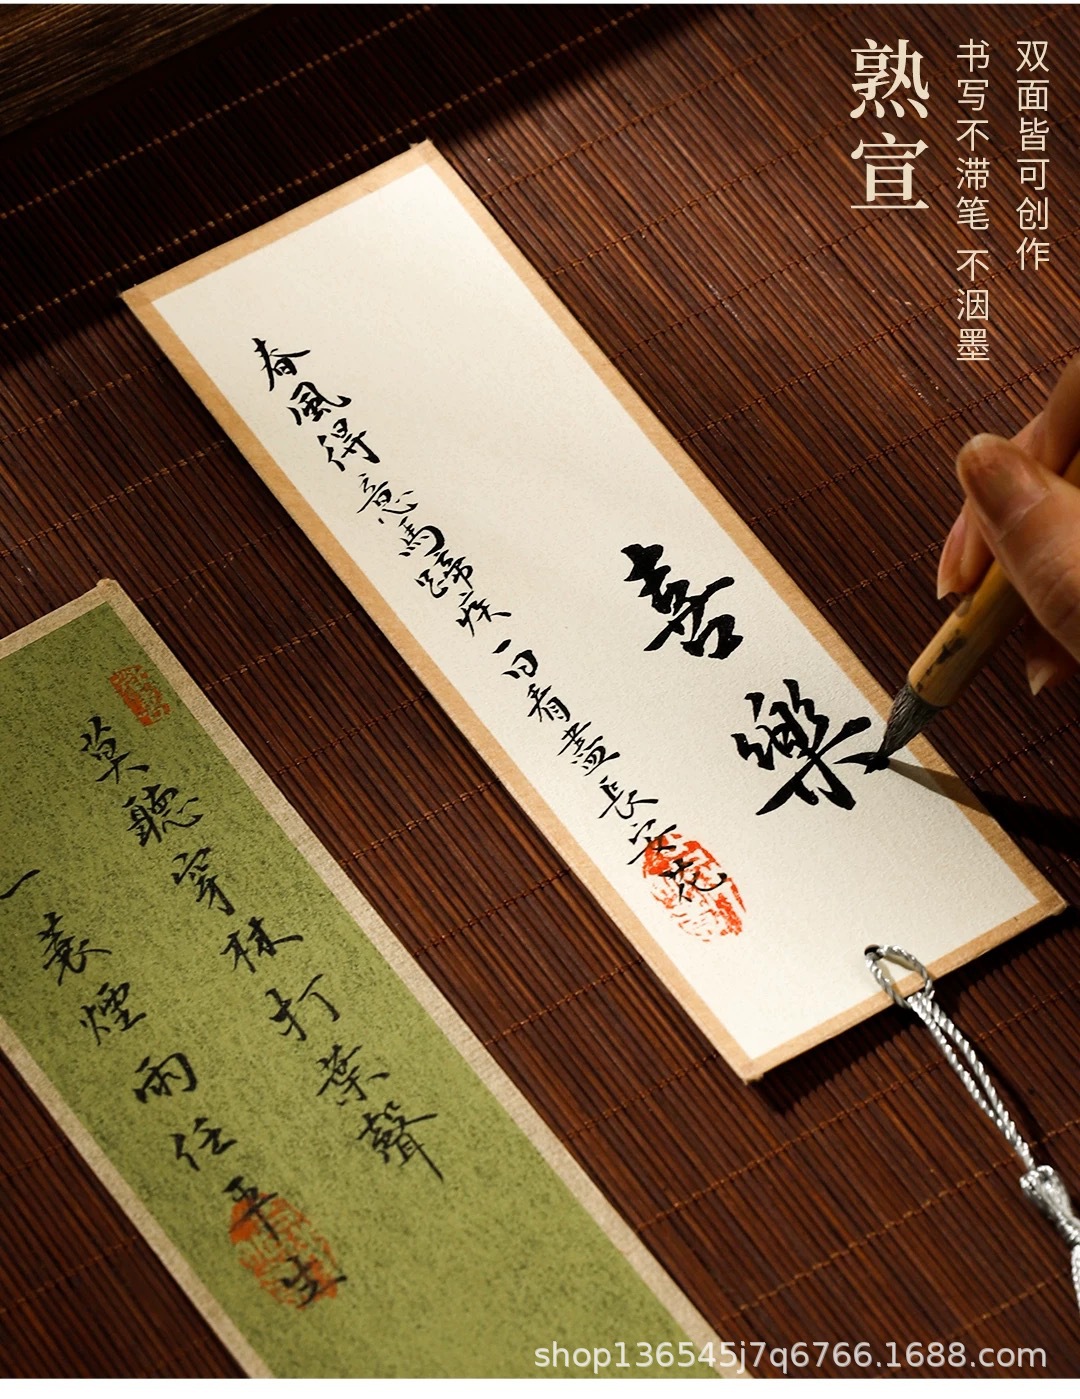 双面皆可创作
书写不滞笔 不洇墨
熟宣
喜樂
春風得意馬蹄疾一日看盡長安花
莫聽穿林打葉聲
一蓑煙雨任平生
shop136545j7q6766.1688.com